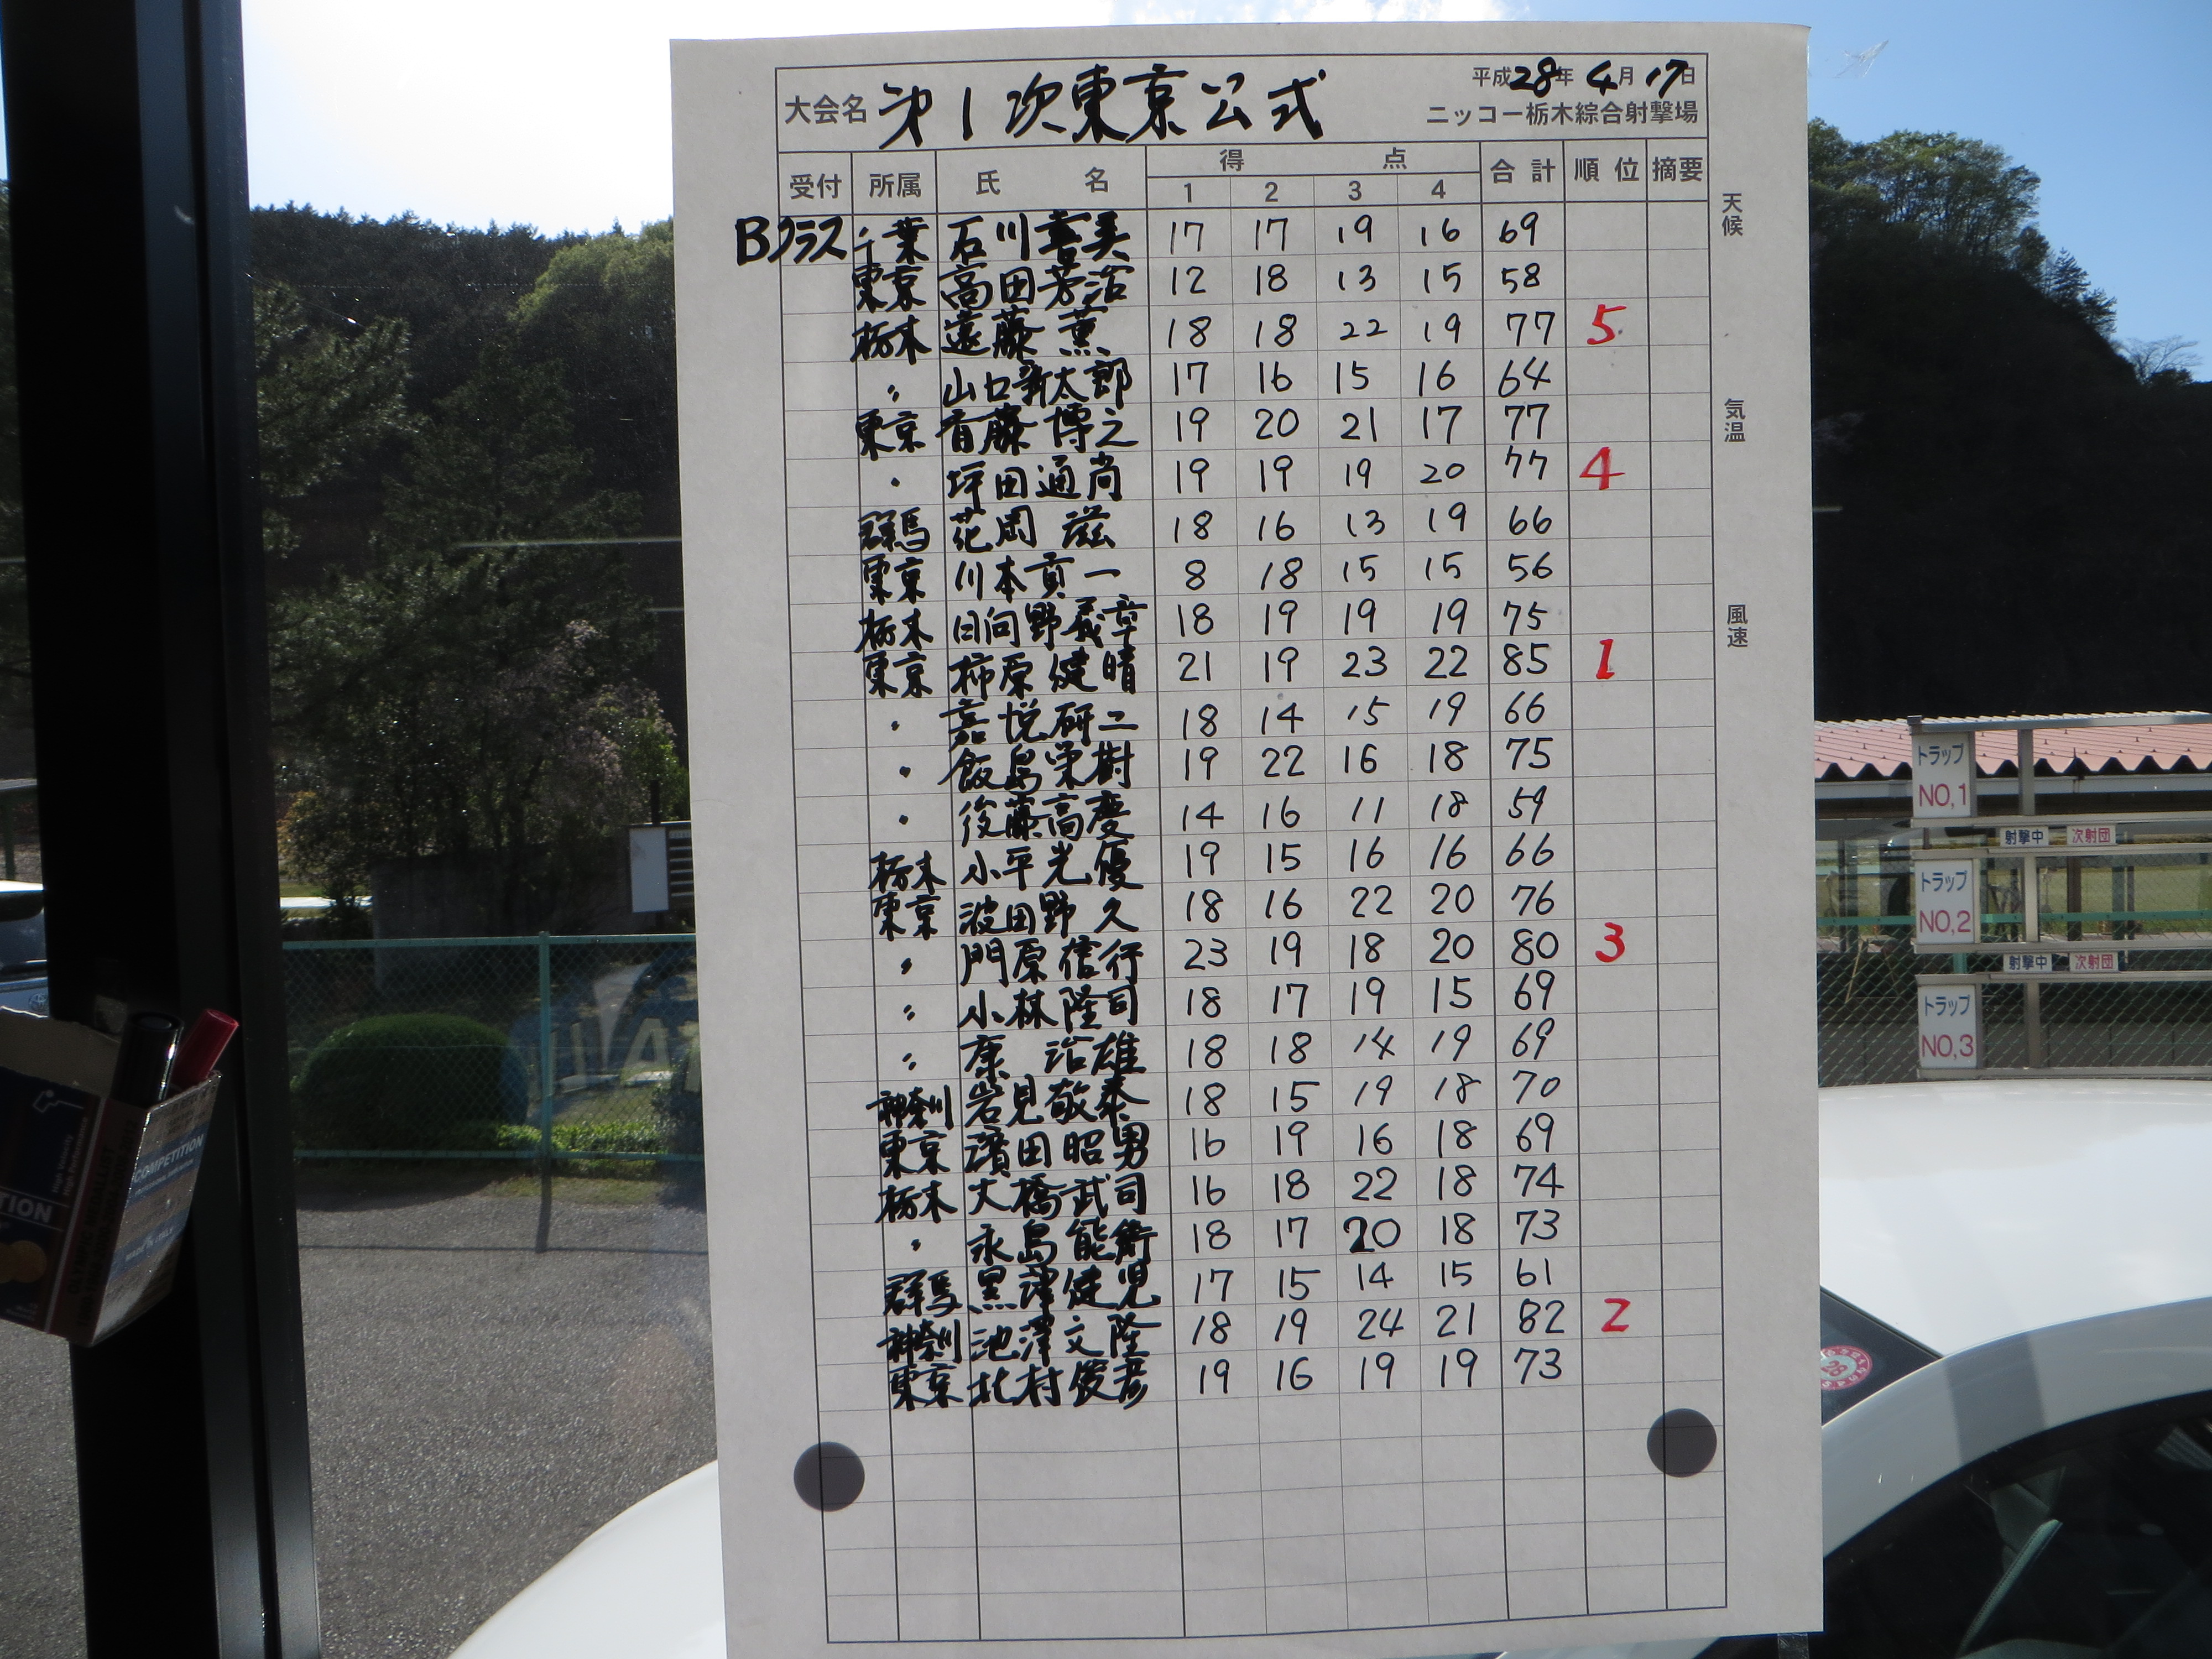 平成28年 4月 17日
大会名 第1次東京公式
ニッコー栃木綜合射撃場
受付 所属 氏名 得点 合計 順位 摘要
1 2 3 4
天候
気温
風速
Bクラス 千葉 石川喜美 17 17 19 16 69
東京 高田芳治 12 18 13 15 58
栃木 遠藤 薫 18 18 22 19 77 5
〃 山口新太郎 17 16 15 16 64
東京 斉藤博之 19 20 21 17 77
〃 坪田通尚 19 19 19 20 77 4
群馬 花岡 滋 18 16 13 19 66
東京 川本貢一 8 18 15 15 56
栃木 日向野義章 18 19 19 19 75
東京 柿原健晴 21 19 23 22 85 1
〃 嘉悦研二 18 14 15 19 66
〃 飯島栄樹 19 22 16 18 75
〃 後藤高慶 14 16 11 18 59
栃木 小平光優 19 15 16 16 66
東京 波田野 久 18 16 22 20 76
〃 門原信行 23 19 18 20 80 3
〃 小林隆司 18 17 19 15 69
〃 康 治雄 18 18 14 19 69
神奈川 岩見敬泰 18 15 19 18 70
東京 濱田昭男 16 19 16 18 69
栃木 大橋武司 16 18 22 18 74
〃 永島能衛 18 17 20 18 73
群馬 黒澤健児 17 15 14 15 61
神奈川 池澤文隆 18 19 24 21 82 2
東京 北村俊彦 19 16 19 19 73
トラップ
NO,1
射撃中 次射団
トラップ
NO,2
射撃中 次射団
トラップ
NO,3
COMPETITION
28